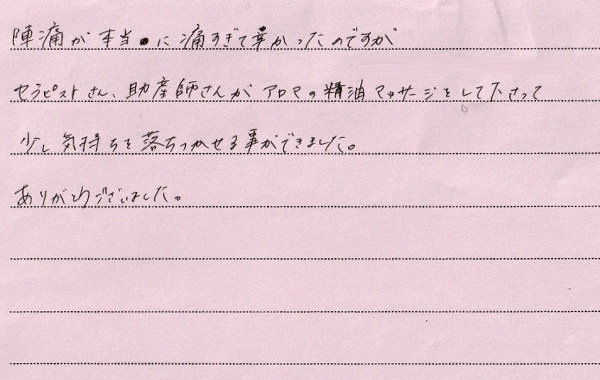 陣痛が本当に痛すぎて辛かったのですが
セラピストさん、助産師さんがアロマの精油マッサージをして下さって
少し気持ちを落ちつかせる事ができました。
ありがとうございました。